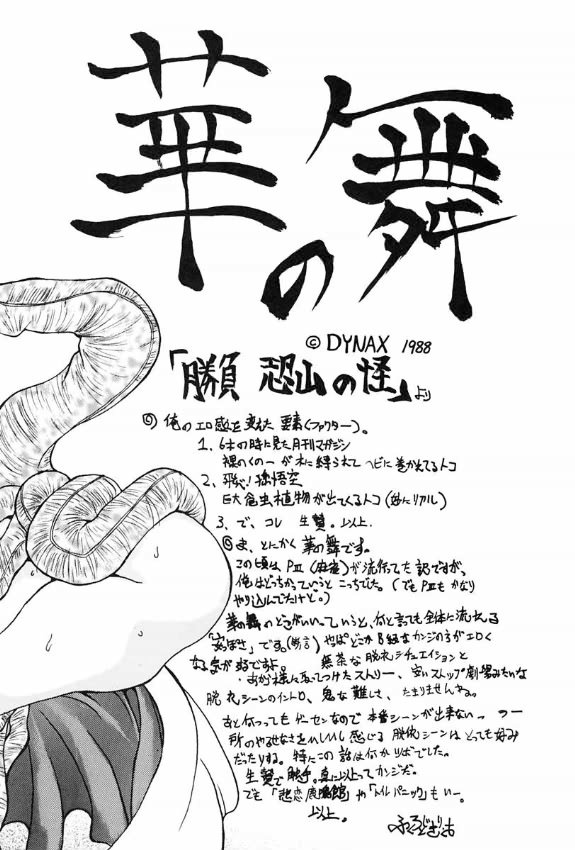 華の舞
© DYNAX 1988
「勝負 恐山の怪」より
◎ 俺のエロ感を変えた要素(ファクター)。
1、6才の時に見た月刊マガジン
裸のくの一が木に縛られてヘビに巻かれてるトコ
2、飛べ!孫悟空
巨大食虫植物が出てくるトコ(妙にリアル)
3、で、コレ 生贄。以上。
◎ま、とにかく華の舞です。
この頃はPⅢ(麻雀)が流行ってた訳ですが、
俺はどっちかっていうとこっちでした。(でもPⅢもかなり
やり込んでたけど。)
華の舞のどこがいいっていうと、何と言っても全体に流れる
です。(断言)やっぱどこかB級なカンジの方がエロく
なる気が好ですよ。 無茶な脱衣シチュエイションと
あから様に取ってつけたストリー、安いストリップ劇場みたいな
脱衣シーンのイントロ、鬼な難しさ、たまりませんなぁ。
あと何つってもゲーセンなので本番シーンが出来ないっつー
所のやるせなさをひしひし感じる脱衣シーンはとっても好み
だったりする。特にこの話は何かりばでした。
生贄で触手。真に以上ってカンジだ。
でも「悲恋 館」や「トイレパニック」もいー。
以上。